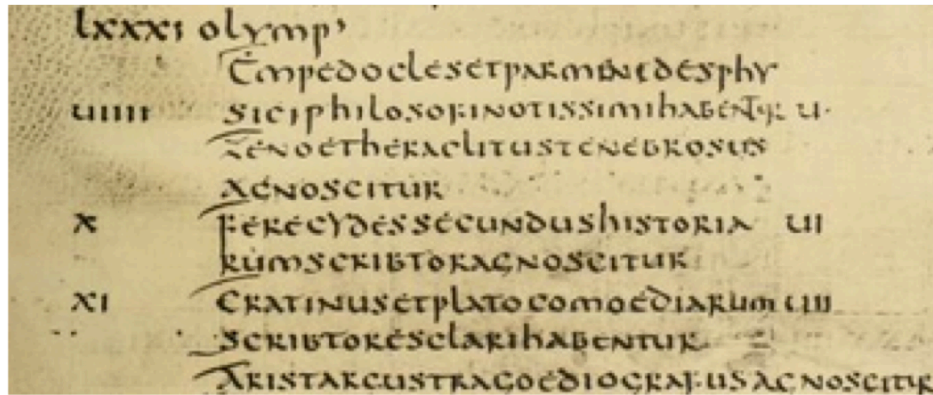 lxxxi olymp'
Empedocles et parmenides phy
uiiii sici philosofi notissimi habentur u.
Zeno et heraclitus tenebrosus
agnoscitur
x Ferecydes secundus historia uii
rum scribtor agnoscitur
xi Cratinus et plato comoediarum uiii
scribtores clari habentur
Aristarcus tragoediografus agnoscitur